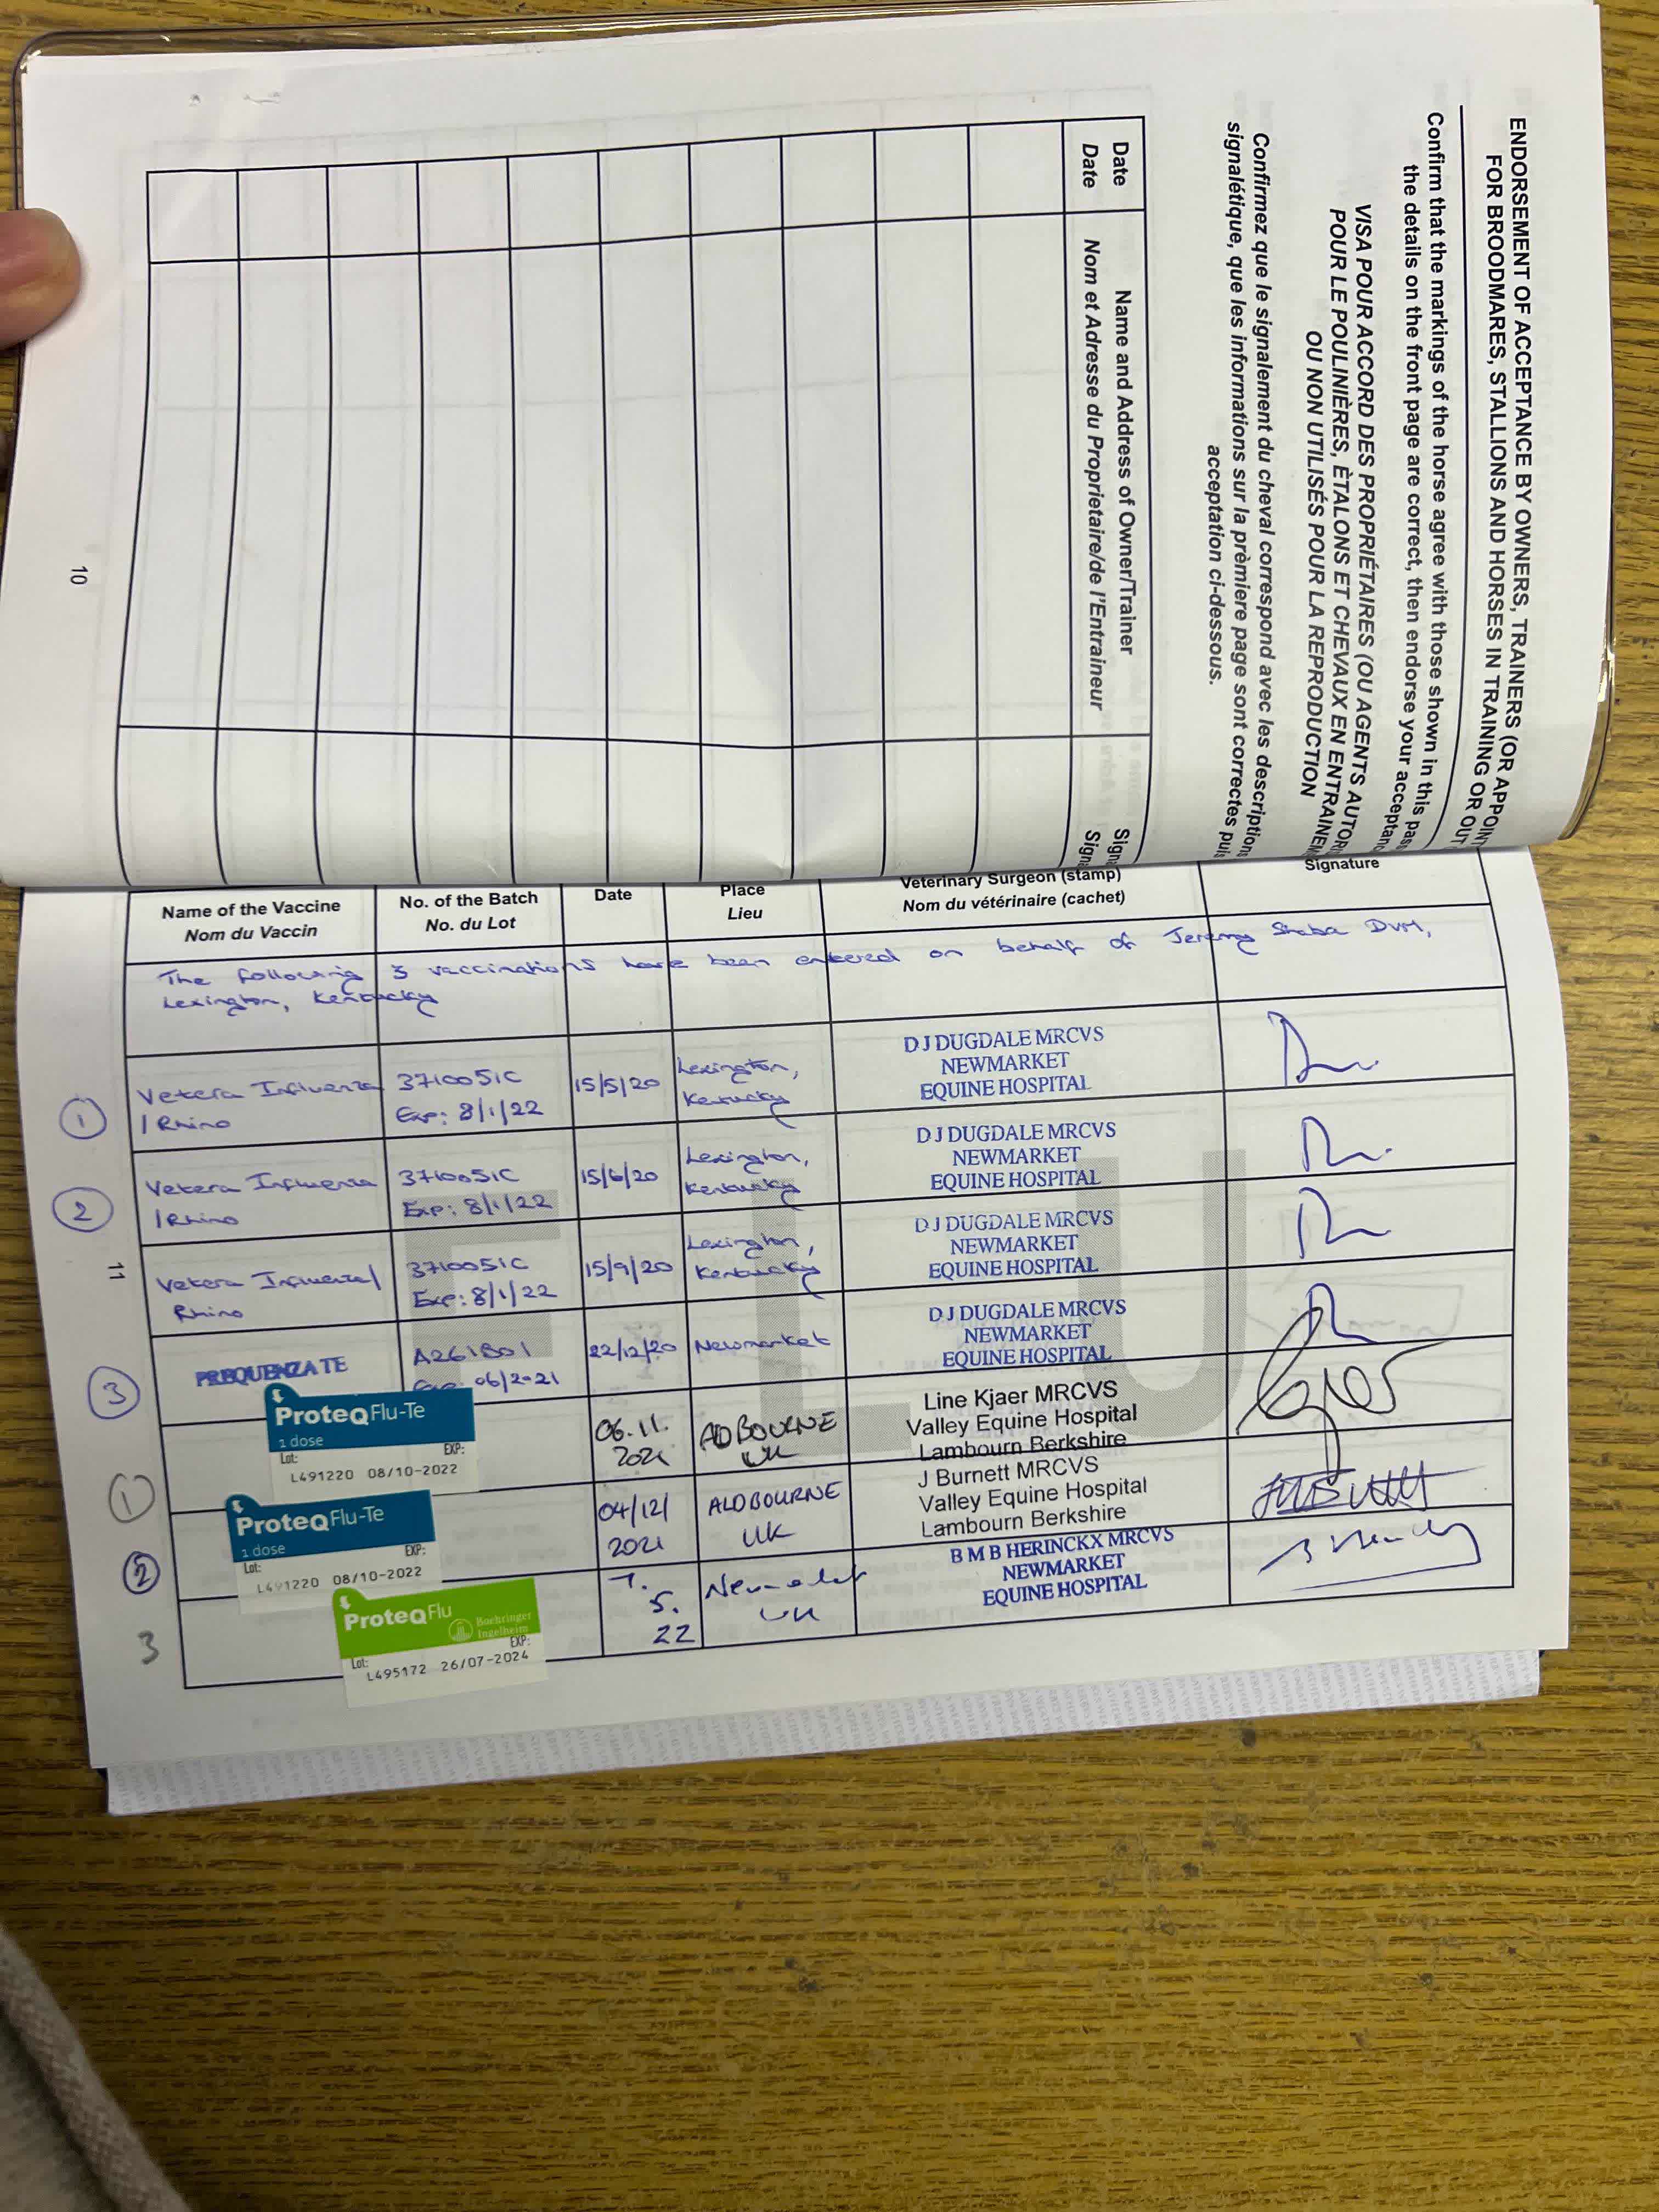 ENDORSEMENT OF ACCEPTANCE BY OWNERS, TRAINERS (OR APPOIN
FOR BROODMARES, STALLIONS AND HORSES IN TRAINING OR OUT
Confirm that the markings of the horse agree with those shown in this pas
the details on the front page are correct, then endorse your acceptan
VISA POUR ACCORD DES PROPRIÉTAIRES (OU AGENTS AUTOR
POUR LE POULINIÈRES, ÈTALONS ET CHEVAUX EN ENTRAINEM
OU NON UTILISÉS POUR LA REPRODUCTION
Confirmez que le signalement du cheval correspond avec les description
signalétique, que les informations sur la prèmiere page sont correctes puis
acceptation ci-dessous.
Date Name and Address of Owner/Trainer Sign
Date Nom et Adresse du Proprietaire/de l'Entraineur Sign
10
Name of the Vaccine No. of the Batch Date Place Veterinary Surgeon (stamp) Signature
Nom du Vaccin No. du Lot Lieu Nom du vétérinaire (cachet)
The following 3 vaccinations have been entered on behalf of Jeremy DVM,
Lexington, Kentucky
1 Vetera Influenza 3710051C 15/5/20 Lexington, D J DUGDALE MRCVS
/ Rhino Exp: 8/1/22 Kentucky NEWMARKET
EQUINE HOSPITAL
2 Vetera Influenza 3710051C 15/6/20 Lexington, D J DUGDALE MRCVS
/ Rhino Exp: 8/1/22 Kentucky NEWMARKET
EQUINE HOSPITAL
11
Vetera Influenza/ 3710051C 15/9/20 Lexington, D J DUGDALE MRCVS
Rhino Exp: 8/1/22 Kentucky NEWMARKET
EQUINE HOSPITAL
FLU
3 PREQUENZA TE A261B01 22/12/20 Newmarket D J DUGDALE MRCVS
Exp: 06/2021 NEWMARKET
EQUINE HOSPITAL
1 ProteqFlu-Te 06.11. ADBOURNE Line Kjaer MRCVS
1 dose 2021 UK Valley Equine Hospital
Lot: EXP: Lambourn Berkshire
L491220 08/10-2022
2 ProteqFlu-Te 04/12/ ALDBOURNE J Burnett MRCVS
1 dose 2021 UK Valley Equine Hospital
Lot: EXP: Lambourn Berkshire
L491220 08/10-2022
3 ProteqFlu Newmarket B M B HERINCKX MRCVS
Boehringer 5. UK NEWMARKET
Ingelheim 22 EQUINE HOSPITAL
Lot: EXP:
L495172 26/07-2024